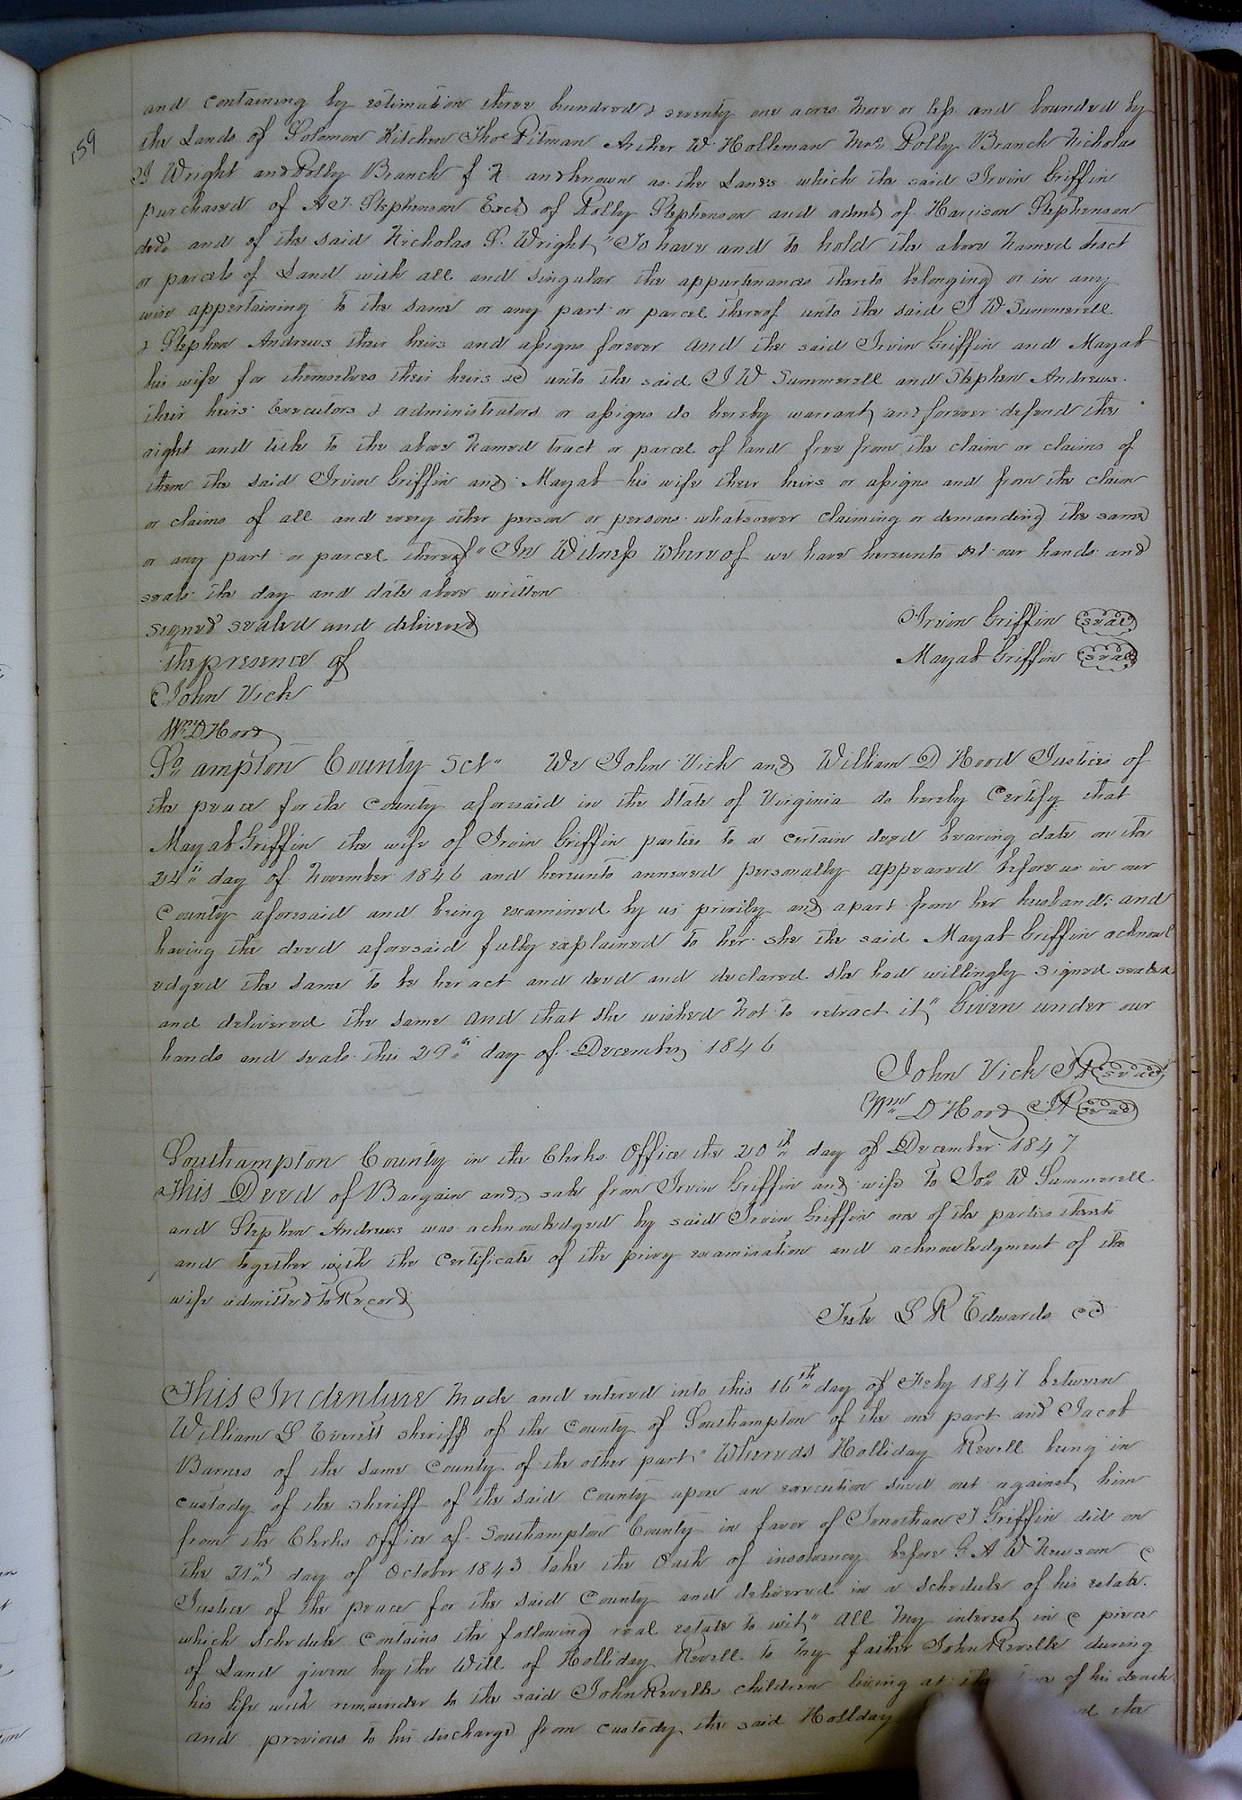 159
and containing by estimation three hundred & seventy one acres more or less and bounded by
the Lands of Solomon Kitchen Thos Pitman Archer W Holleman Mrs Polly Branch Nicholas
S Wright and Polly Branch f N and known as the Lands which the said Irvin Griffin
purchased of A J. Stephenson Exct of Polly Stephenson and admt of Harrison Stephenson
decd and of the said Nicholas S. Wright, "To have and to hold the above named tract
or parcels of Land with all and singular the appurtenances thereto belonging or in any
wise appertaining to the same or any part or parcel thereof unto the said J W Summerell
& Stephen Andrews their heirs and assigns forever and the said Irvin Griffin and Mayab
his wife for themselves their heirs &c unto the said J W Summerell and Stephen Andrews.
their heirs Executors & administrators or assigns do hereby warrant, and forever defend the
right and title to the above named tract or parcel of land free from the claim or claims of
them the said Irvin Griffin and Mayab his wife their heirs or assigns and from the claim
or claims of all and every other person or persons whatsoever claiming or demanding the same
or any part or parcel thereof" In Witness Whereof we have hereunto set our hands and
seals the day and date above written
signed sealed and delivered Irvin Griffin (seal)
the presence of Mayab Griffin (seal)
John Vick
Wm D Hood
So ampton County Sct" We John Vick and William D Hood Justices of
the peace for the County aforesaid in the State of Virginia do hereby Certify that
Mayab Griffin the wife of Irvin Griffin parties to a certain deed bearing date on the
24th day of November 1846 and hereunto annexed personally appeared before us in our
County aforesaid and being examined by us privily and apart from her husband; and
having the deed aforesaid fully explained to her she the said Mayab Griffin acknowl
edged the same to be her act and deed and declared she had willingly signed sealed
and delivered the same and that she wished not to retract it" Given under our
hands and seals this 29th day of December 1846
John Vick JP (seal)
Wm D Hood JP (seal)
Southampton County in the Clerks Office the 20th day of December 1847
This Deed of Bargain and sale from Irvin Griffin and wife to Jno W Summerell
and Stephen Andrews was acknowledged by said Irvin Griffin one of the parties thereto
and together with the Certificate of the privy examination and acknowledgment of the
wife admitted to Record
Teste L R Edwards cc
This Indenture made and entered into this 16th day of Feby 1847 between
William L Everitt sheriff of the County of Southampton of the one part and Jacob
Barnes of the same County of the other part" Whereas Holliday Revell being in
custody of the sheriff of the said County upon an execution sued out against him
from the Clerks Office of Southampton County in favor of Jonathan J Griffin did on
the 21st day of October 1843 take the Oath of insolvency before G A W Newsom a
Justice of the peace for the said County and delivered in a schedule of his estate.
which Schedule contains the following real estate to wit," All my interest in a piece
of Land given by the Will of Holliday Revell to my father John Revelle during
his life with remainder to the said John Revells children living at the of his death
and previous to his discharge from custody the said Hollday the